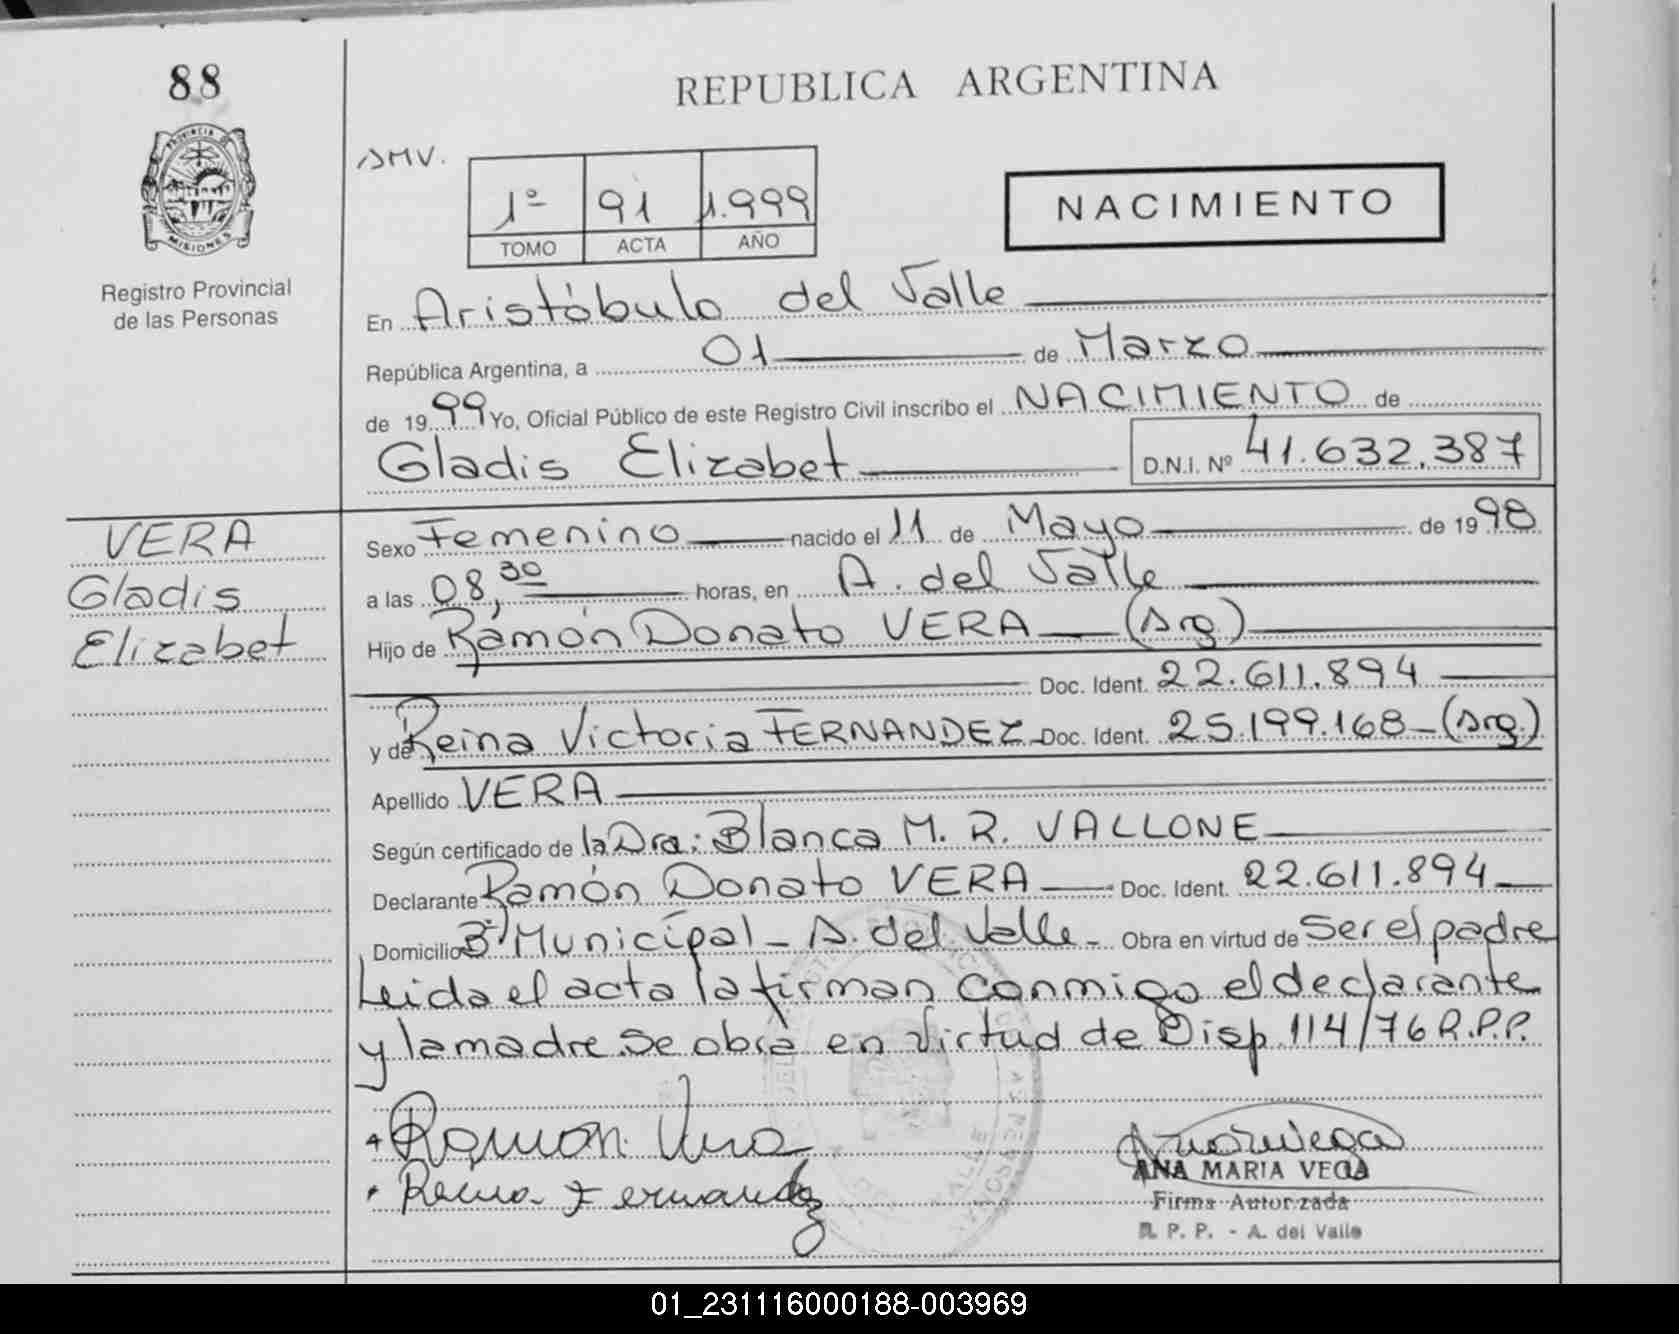 88
REPUBLICA ARGENTINA
PROVINCIA DE
MISIONES
Registro Provincial
de las Personas
SMV.
1º 91 1.999
TOMO ACTA AÑO
NACIMIENTO
En Aristóbulo del Valle
República Argentina, a 01 de Marzo
de 1999 Yo, Oficial Público de este Registro Civil inscribo el NACIMIENTO de
Gladis Elizabet D.N.I. Nº 41.632.387
VERA
Gladis
Elizabet
Sexo Femenino nacido el 11 de Mayo de 1998
a las 08,30 horas, en A. del Valle
Hijo de Ramón Donato VERA (Arg.)
Doc. Ident. 22.611.894
y de Reina Victoria FERNANDEZ Doc. Ident. 25.199.168 - (Arg.)
Apellido VERA
Según certificado de la Dra: Blanca M. R. VALLONE
Declarante Ramón Donato VERA Doc. Ident. 22.611.894
Domicilio Bº Municipal - A. del Valle - Obra en virtud de Ser el padre
Leida el acta la firman conmigo el declarante
y la madre. Se obra en Virtud de Disp. 114/76 R.P.P.
Ramon Vera
Reina Fernandez
ANA MARIA VEGA
Firma Autorizada
R. P. P. - A. del Valle
01_231116000188-003969